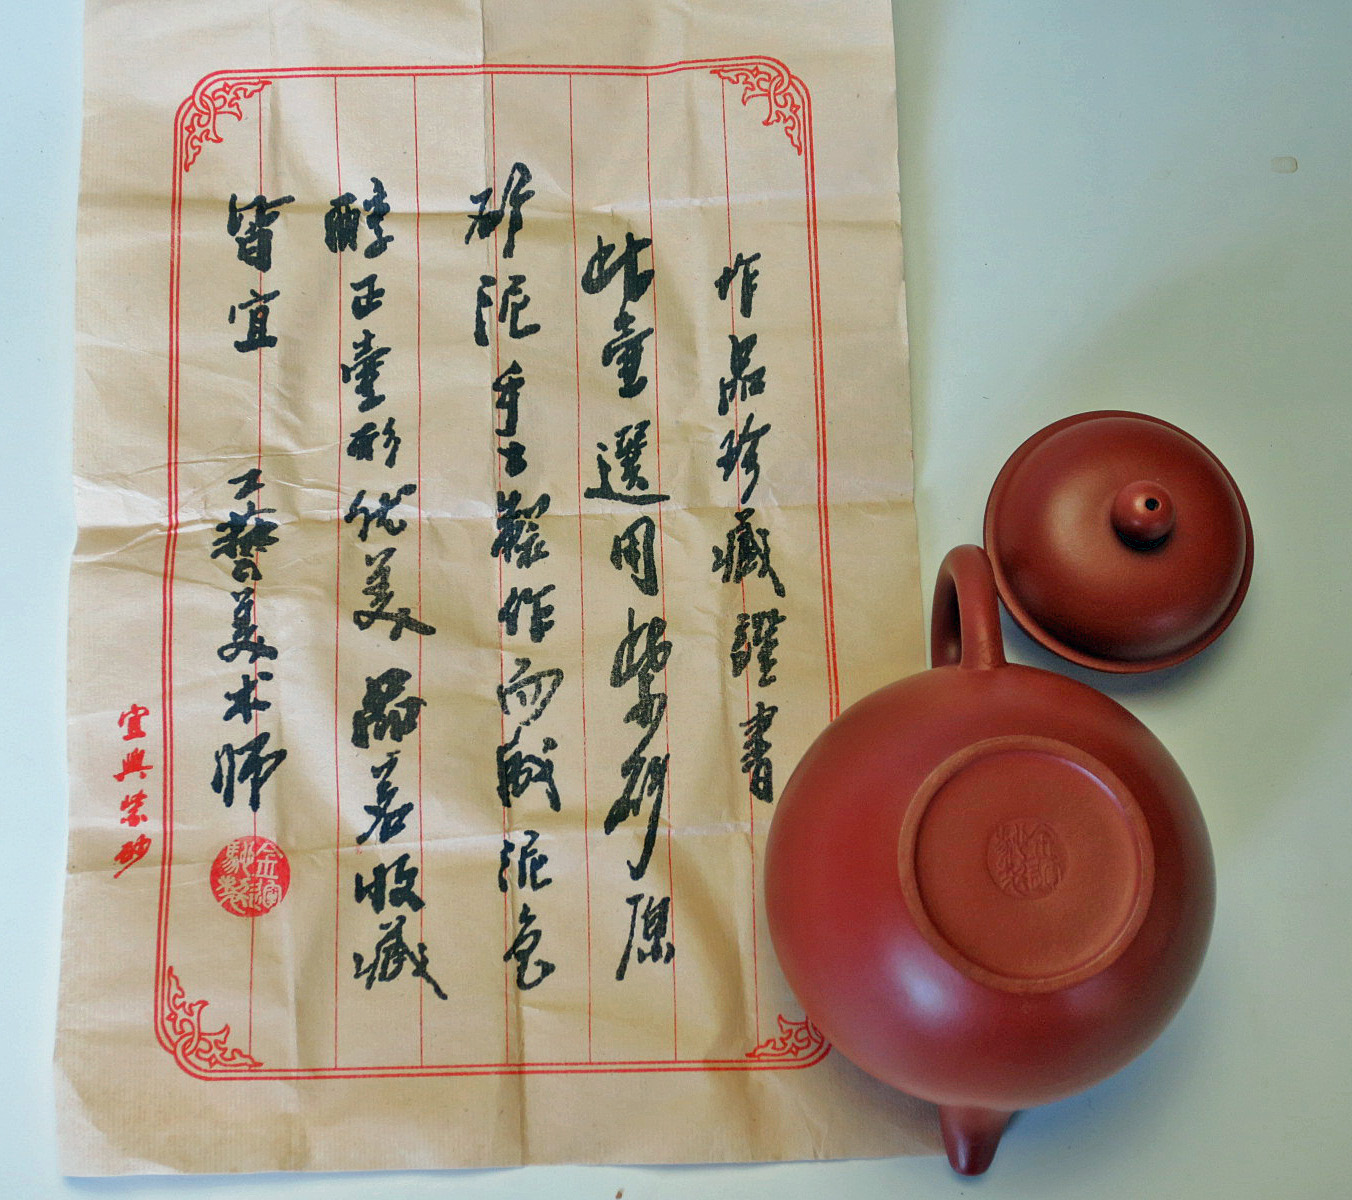 作品珍藏證書
此壶選用紫砂原
矿泥手工製作而成泥色
醇正壶形优美品茗收藏
皆宜 工藝美术师
宜興紫砂